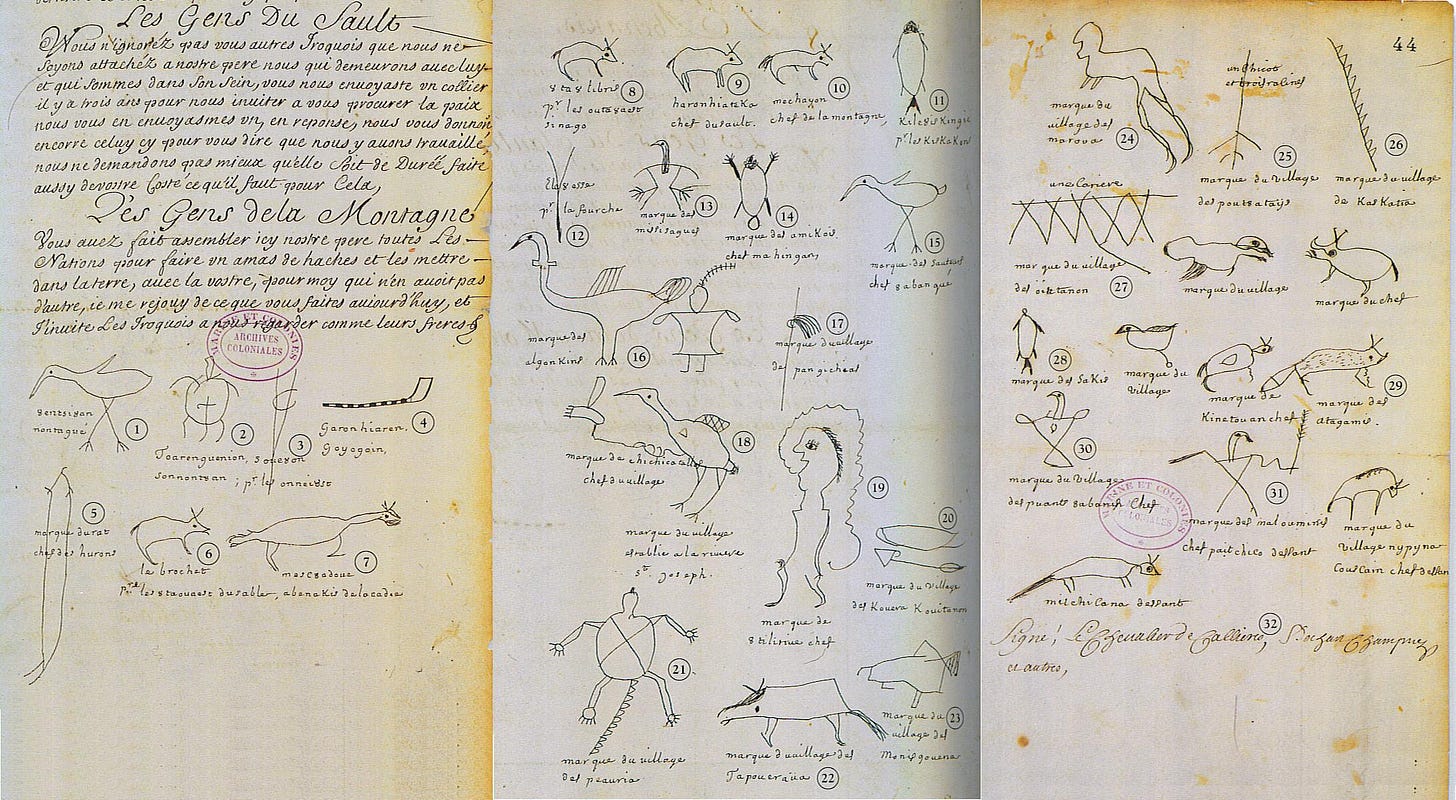 Les Gens Du Sault
Vous n'ignoréz pas vous autres Iroquois que nous ne
soyons attachéz a nostre pere nous qui demeurons avec luy
et qui sommes dans son sein, vous nous envoyaste vn collier
il y a trois ans pour nous inuiter a vous procurer la paix
nous vous en enuoyasmes vn, en reponse, nous vous donnon
encorre celuy cy pour vous dire que nous y auons trauaillé,
nous ne demandons pas mieux qu'elle soit de Duréé faite
aussy de vostre Costé ce qu'il faut pour Cela,
Les Gens de la Montagne
Vous auez fait assembler icy nostre pere toutes Les
Nations pour faire vn amas de haches et les mettre
dans la terre, auec la vostre, pour moy qui n'en auoit pas
d'autre, ie me rejouy de ce que vous faites aujourd'huy, et
J'inuite Les Iroquois a nous regarder comme leurs freres
MARINE ET COLONIES
ARCHIVES
COLONIALES
8entsi8an
nontagué
1
2
Toarenguenion,
sonnontsan
3
; pr les onnei8st
Garonhiaren,
Goyogoin,
4
5
marque du rat
chef des hurons
6
le brochet
pre les 8ta8aest du sable,
7
mesc8adoue
abenakis de lacadie
8
8ta8libris
pr les outa8aest
sinago
9
haronhiateka
chef du sault.
10
mechayon
chef de la montagne,
11
Kile8isKingie
pr les KisKaKons
12
Ela8esse
pr la fourche
13
marque des
missisagues
14
marque des amikois,
chef mahingan,
15
marque des sauteurs
chef 8abangué
16
marque des
algonkins
17
marque du village
de pangicheas
18
marque de chichicatallo
chef du village
marque du village
establie a la riuiere
st. Joseph.
19
marque de
8tilirine chef
20
marque du Village
des Kouera Kouitanon
21
marque du village
des peauria
22
marque d uuillage des
Tapouaraüa
23
marque du
village des
Monisgouena
44
24
marque du
village des
maroua
25
un Chicot
et trois ralines
marque du Village
des pouta8atays
26
marque du village
de KasKatia
une Lariere
27
marque du village
des oüetanon
marque du village
marque du chef
28
marque des saKis
marque du
Village
marque de
Kinetouan chef
29
marque des
atagamis.
30
marque du Village
des puants 8abanis Chef
31
marque des maloumines
chef paitchico dessant
marque du
Village nypyna
Couscain chef dessant
MARINE ET COLONIES
32
mitchicana dessant
Signé, Le Chevalier de Calliere, Bochart Champigny
et autres,